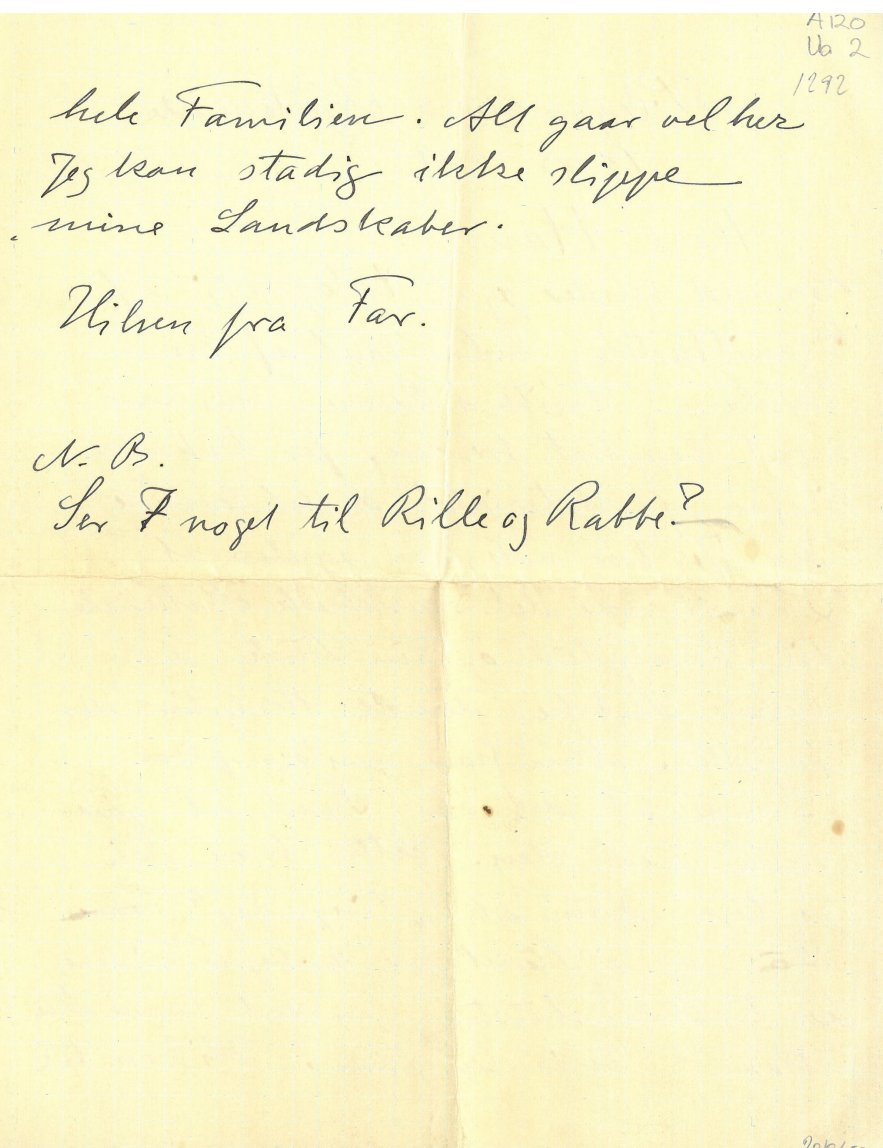 A 120
Ub 2
1292
hele Familien. Alt gaar vel her
Jeg kan stadig ikke slippe
mine Landskaber.
Hilsen fra Far.
N. B.
Ser I noget til Rille og Rabbe?